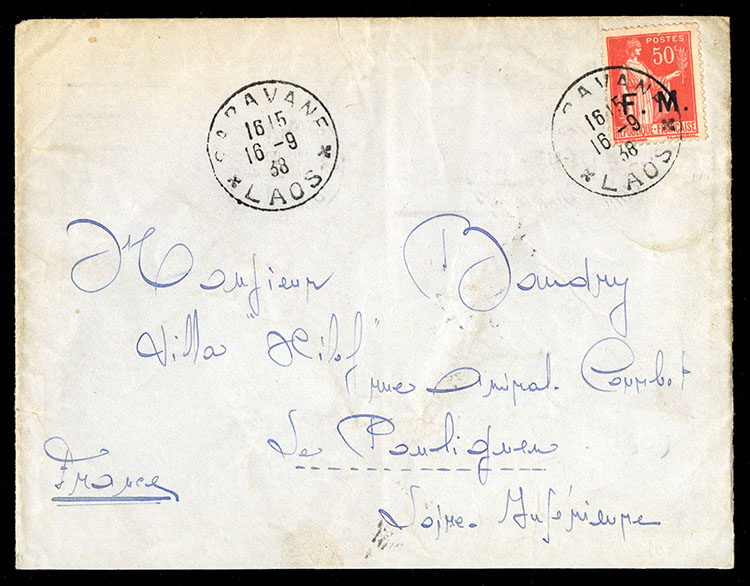 POSTES
50c
F. M.
REPUBLIQUE FRANÇAISE
SARAVANE
1615
16 -9
38
* LAOS *
SARAVANE
1615
16 -9
38
* LAOS *
Monsieur Baudry
Villa
rue Amiral. Courbet
Le Pouliguen
France
Loire. Inférieure